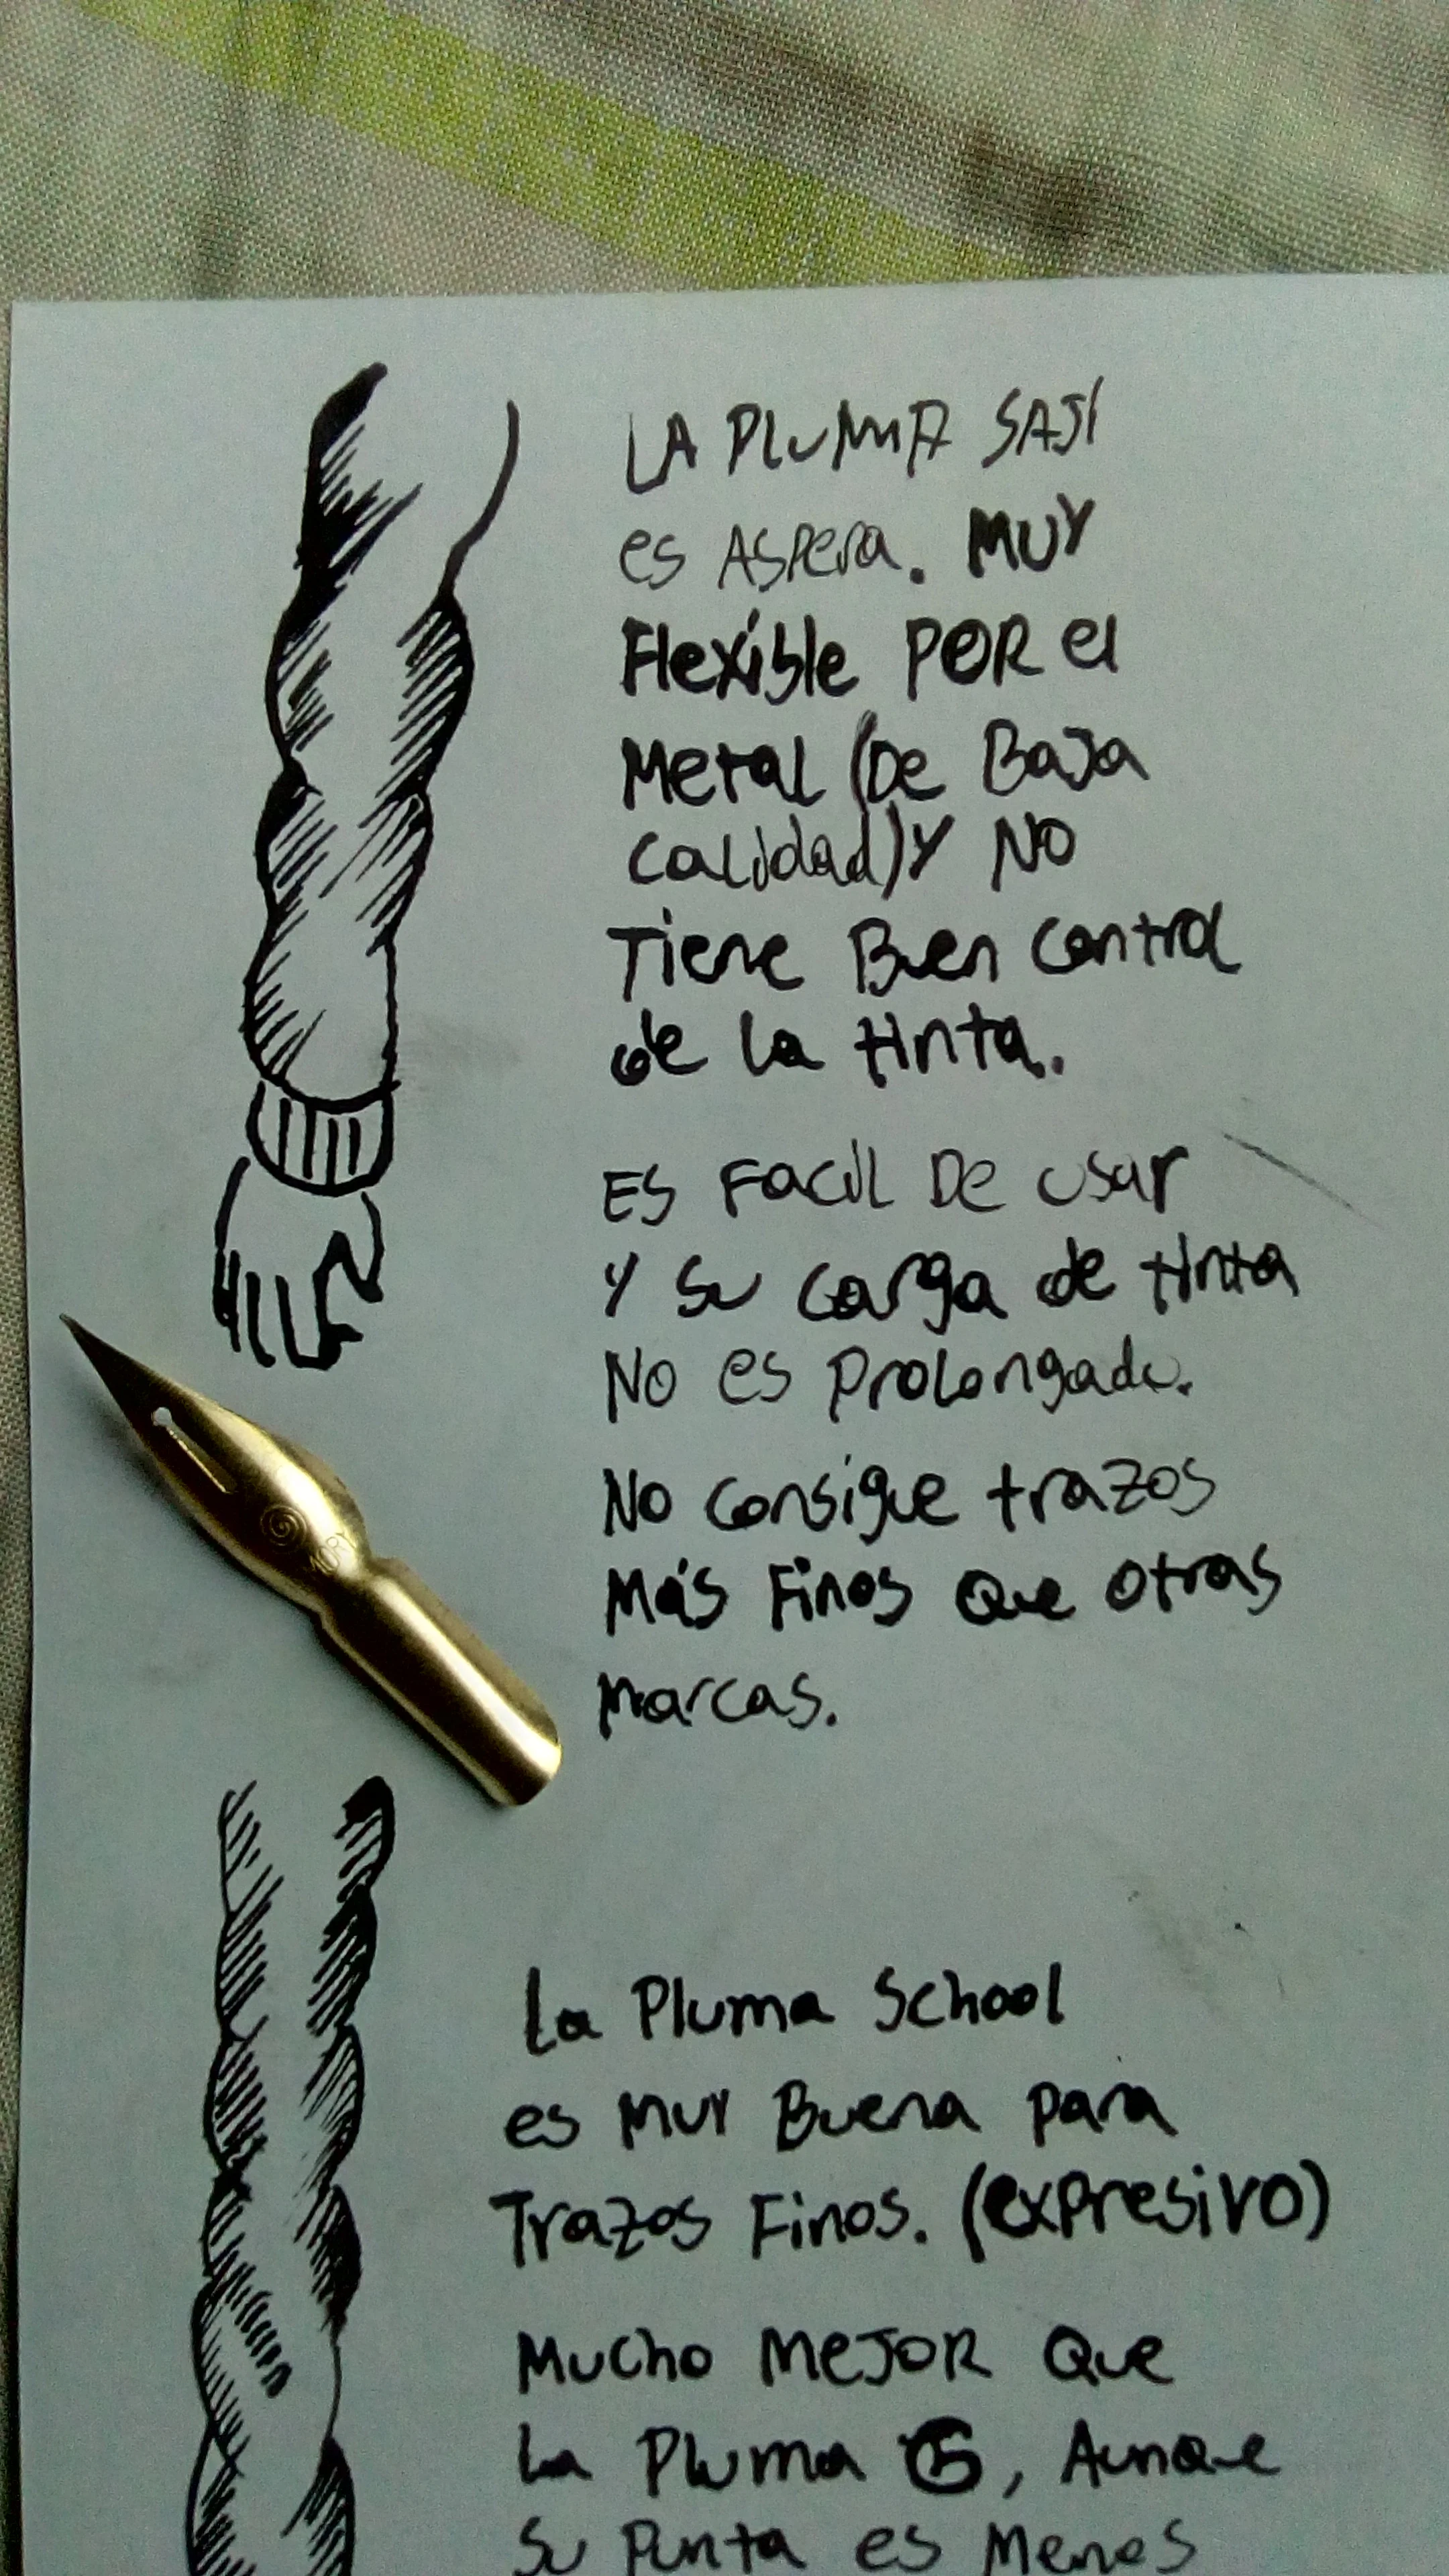 LA PLUMA SAJI
es ASPera. MUY
Flexible POR el
Metal (De Baja
calidad) Y NO
Tiene Buen control
de la tinta.
ES Facil De usar
Y su carga de tinta
NO es Prolongado.
No consigue trazos
Más Finos Que otras
marcas.
La Pluma School
es MUY Buena Para
Trazos Finos. (expresivo)
Mucho MEJOR Que
La Pluma G, Aunque
Su Punta es Menos